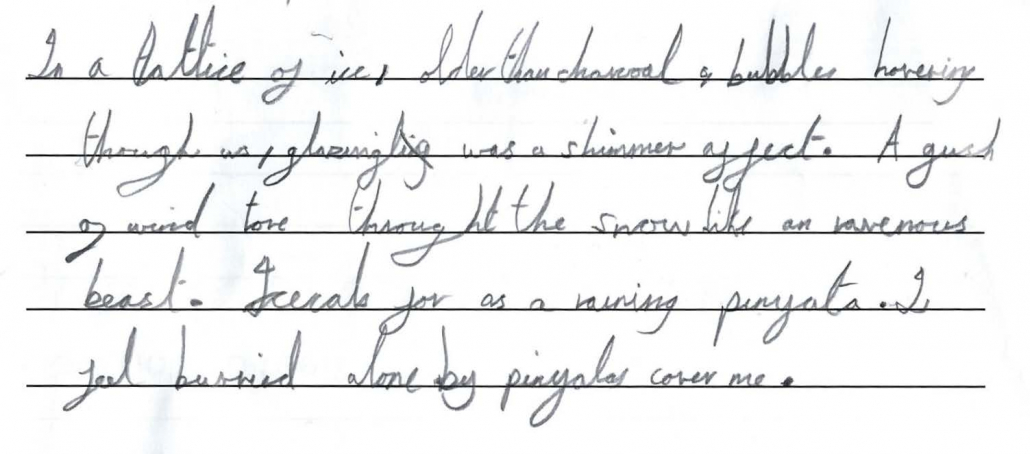 In a lattice of ice, older than charcoal & bubbles hovering
through us, glazing was a shimmer affect. A gush
of wind tore throught the snow like an ravenous
beast. for as a raining pinyata. I
feel burried alone by pinyatas cover me.